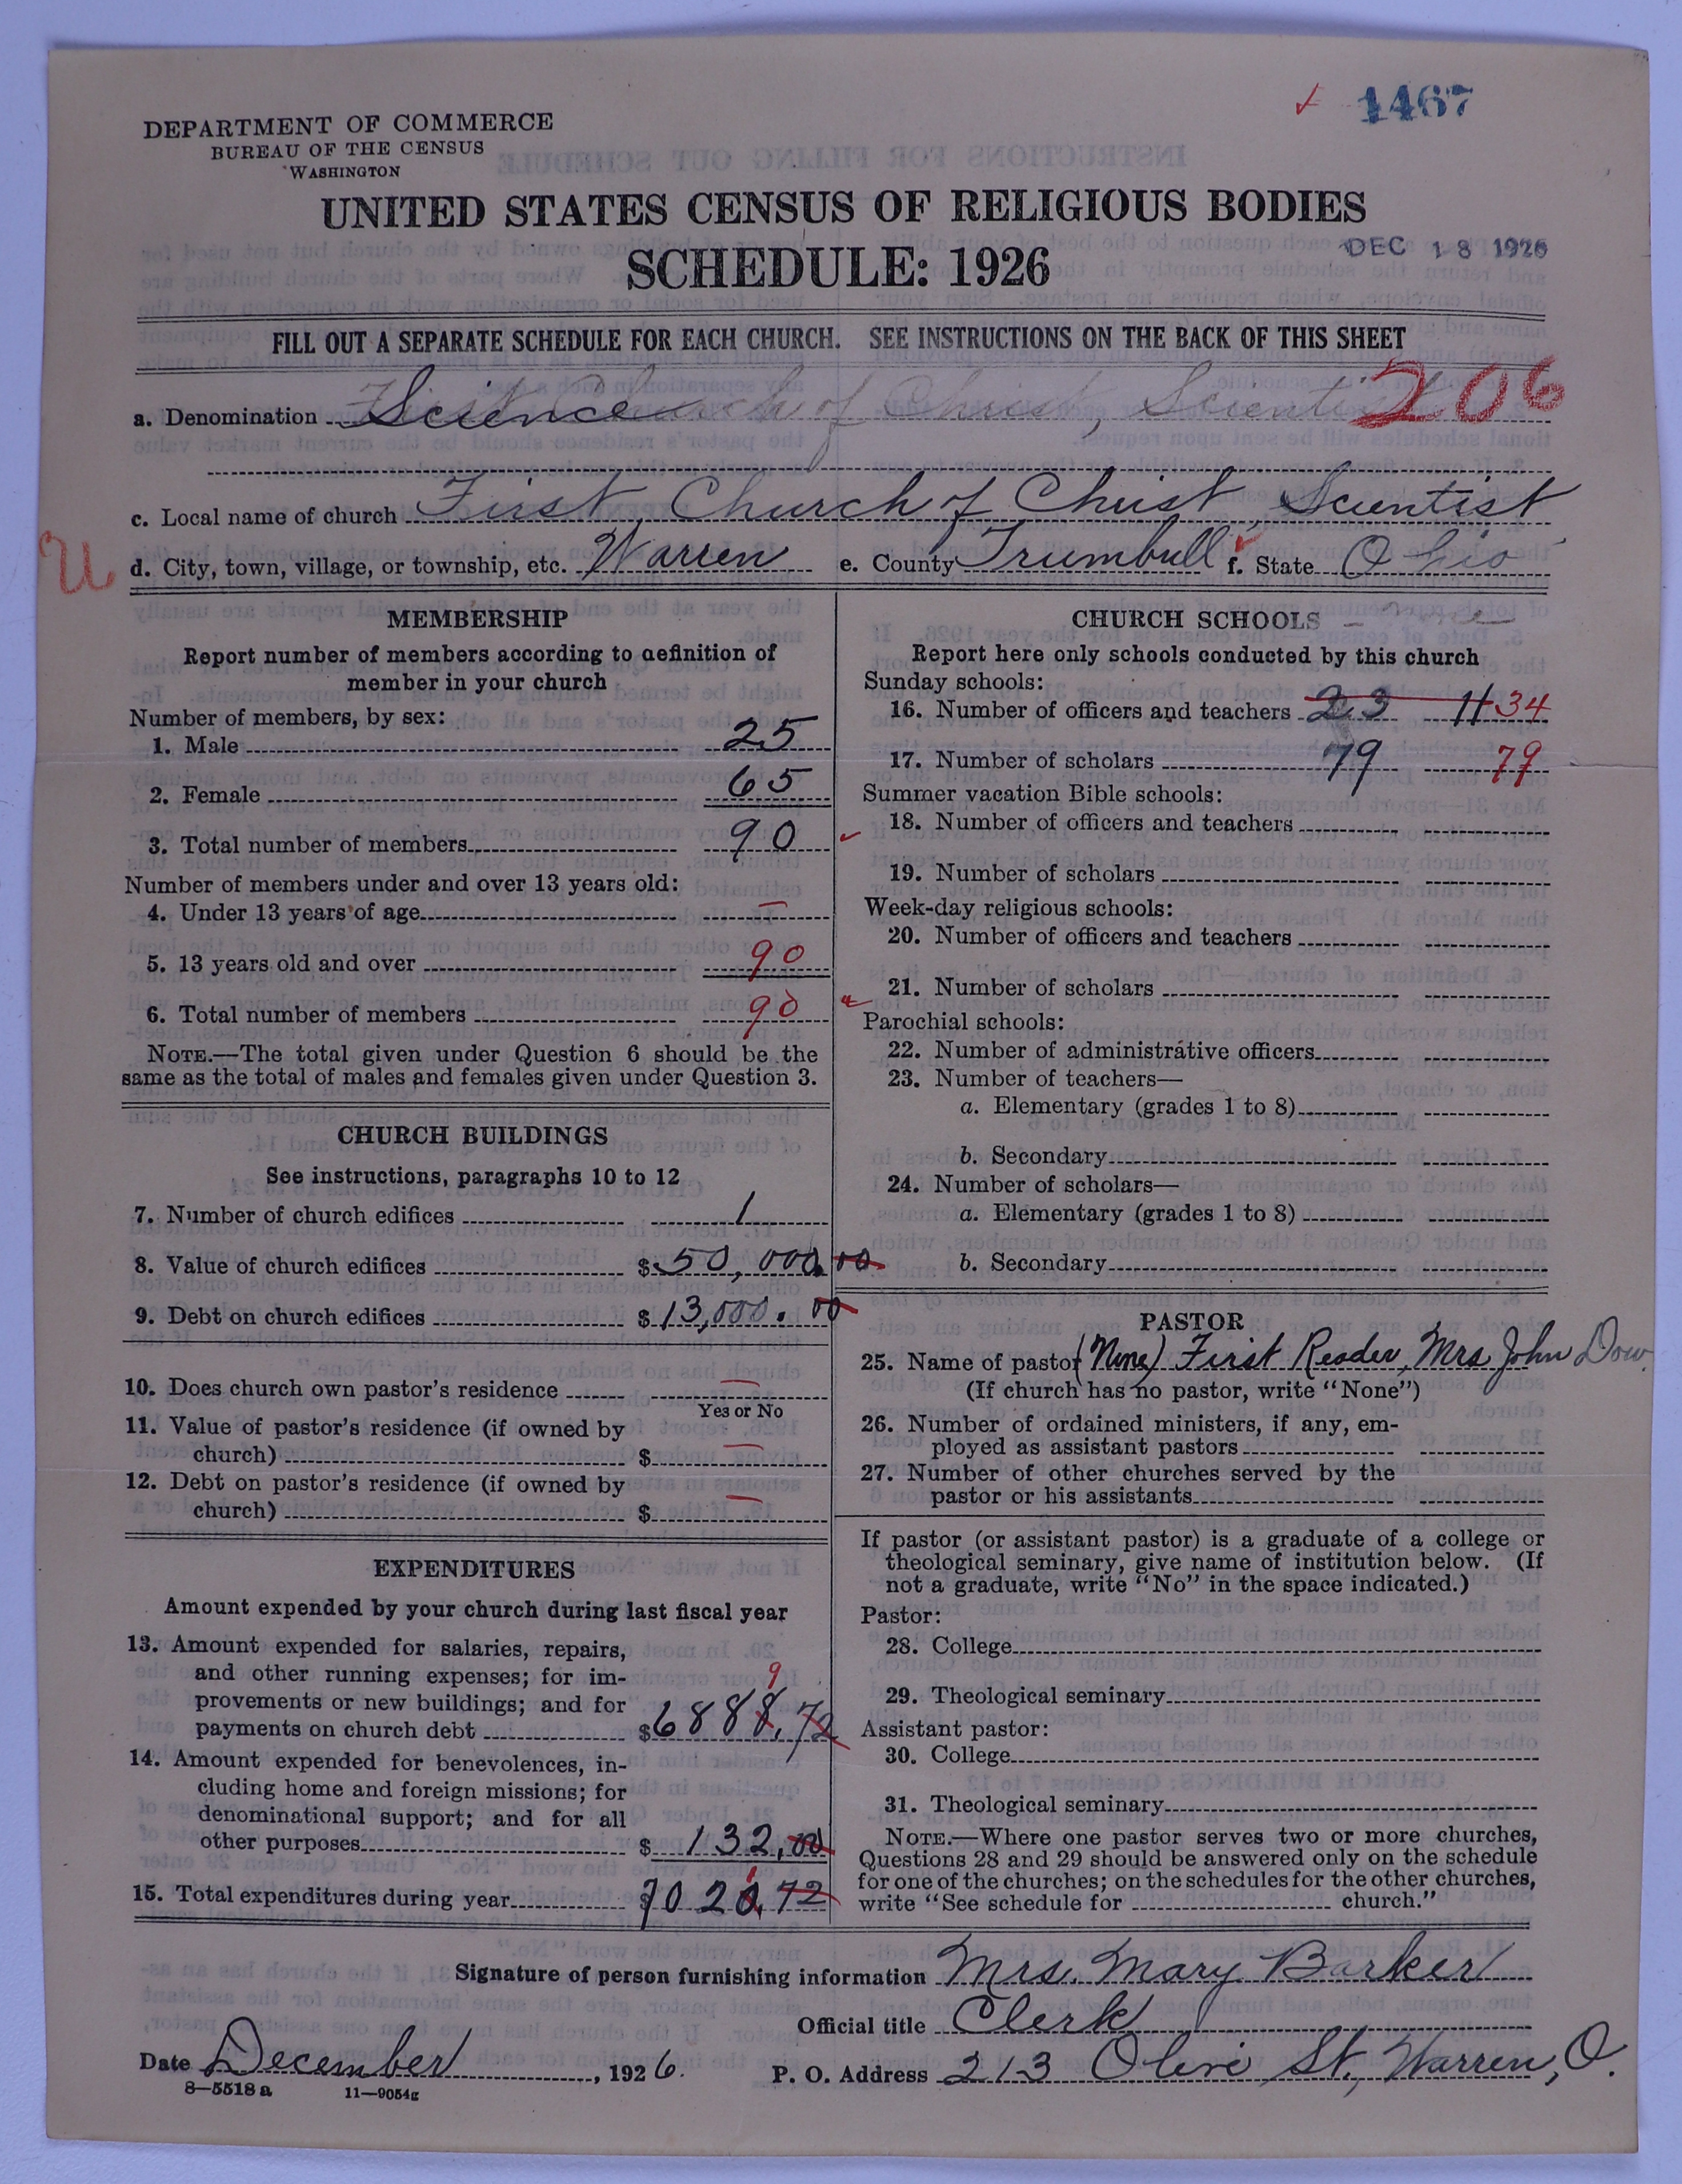 1467
DEPARTMENT OF COMMERCE
BUREAU OF THE CENSUS
WASHINGTON
UNITED STATES CENSUS OF RELIGIOUS BODIES
SCHEDULE: 1926
DEC 18 1926
FILL OUT A SEPARATE SCHEDULE FOR EACH CHURCH. SEE INSTRUCTIONS ON THE BACK OF THIS SHEET
206
a. Denomination Science First Church of Christ, Scientist
c. Local name of church First Church of Christ, Scientist
U
d. City, town, village, or township, etc. Warren e. County Trumbull f. State Ohio
MEMBERSHIP
Report number of members according to definition of
member in your church
Number of members, by sex:
1. Male 25
2. Female 65
3. Total number of members 90
Number of members under and over 13 years old:
4. Under 13 years of age —
5. 13 years old and over 90
6. Total number of members 90
NOTE.—The total given under Question 6 should be the
same as the total of males and females given under Question 3.
CHURCH BUILDINGS
See instructions, paragraphs 10 to 12
7. Number of church edifices 1
8. Value of church edifices $ 50,000.00
9. Debt on church edifices $ 13,000.00
10. Does church own pastor's residence —
Yes or No
11. Value of pastor's residence (if owned by
church) $ —
12. Debt on pastor's residence (if owned by
church) $ —
EXPENDITURES
Amount expended by your church during last fiscal year
13. Amount expended for salaries, repairs,
and other running expenses; for im-
provements or new buildings; and for
9
payments on church debt $6888.72
14. Amount expended for benevolences, in-
cluding home and foreign missions; for
denominational support; and for all
other purposes $ 132.00
1
15. Total expenditures during year $7020.72
CHURCH SCHOOLS - None
Report here only schools conducted by this church
Sunday schools:
16. Number of officers and teachers 23 11 34
17. Number of scholars 79 79
Summer vacation Bible schools:
18. Number of officers and teachers
19. Number of scholars
Week-day religious schools:
20. Number of officers and teachers
21. Number of scholars
Parochial schools:
22. Number of administrative officers
23. Number of teachers—
a. Elementary (grades 1 to 8)
b. Secondary
24. Number of scholars—
a. Elementary (grades 1 to 8)
b. Secondary
PASTOR
25. Name of pastor (None) First Reader, Mrs John Dow
(If church has no pastor, write "None")
26. Number of ordained ministers, if any, em-
ployed as assistant pastors
27. Number of other churches served by the
pastor or his assistants
If pastor (or assistant pastor) is a graduate of a college or
theological seminary, give name of institution below. (If
not a graduate, write "No" in the space indicated.)
Pastor:
28. College
29. Theological seminary
Assistant pastor:
30. College
31. Theological seminary
NOTE.—Where one pastor serves two or more churches,
Questions 28 and 29 should be answered only on the schedule
for one of the churches; on the schedules for the other churches,
write "See schedule for church."
Signature of person furnishing information Mrs. Mary Barker
Official title Clerk
Date December, 1926. P. O. Address 213 Olive St., Warren, O.
8—5518 a 11—9054g